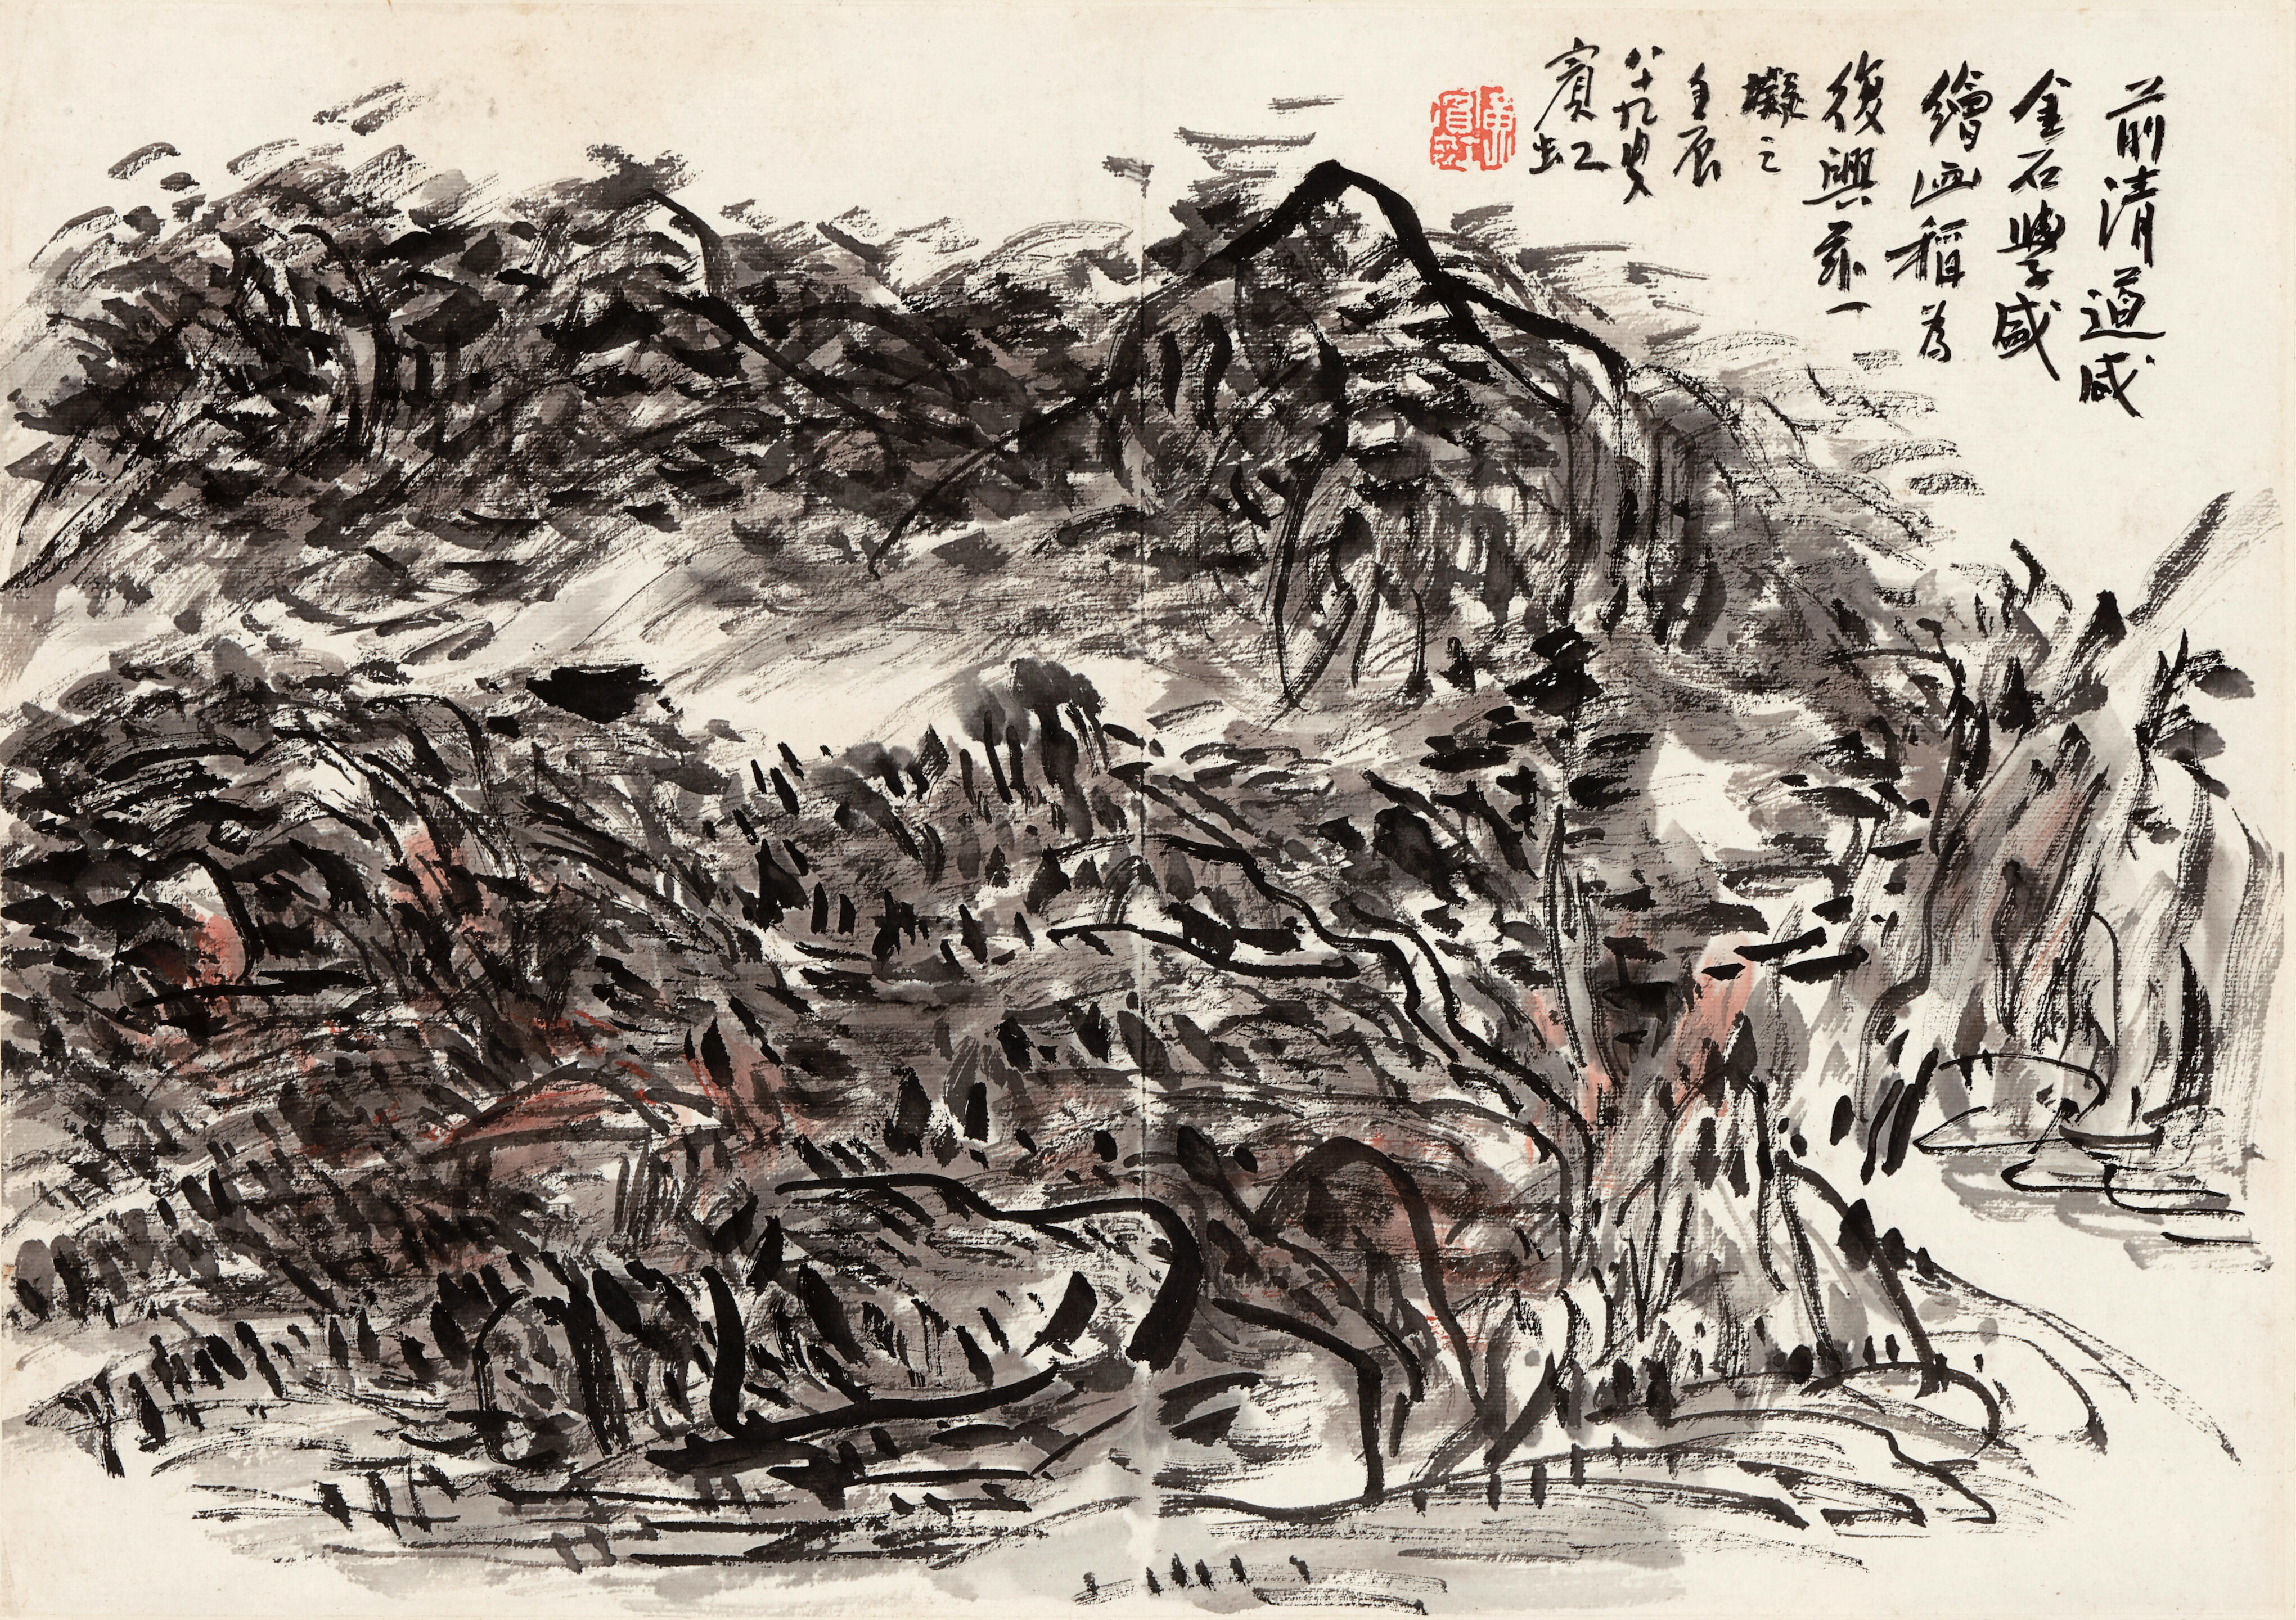 前清道咸
金石學盛
繪画稱為
復興茲一
擬之
壬辰
八十九叟
賓虹
黃賓虹